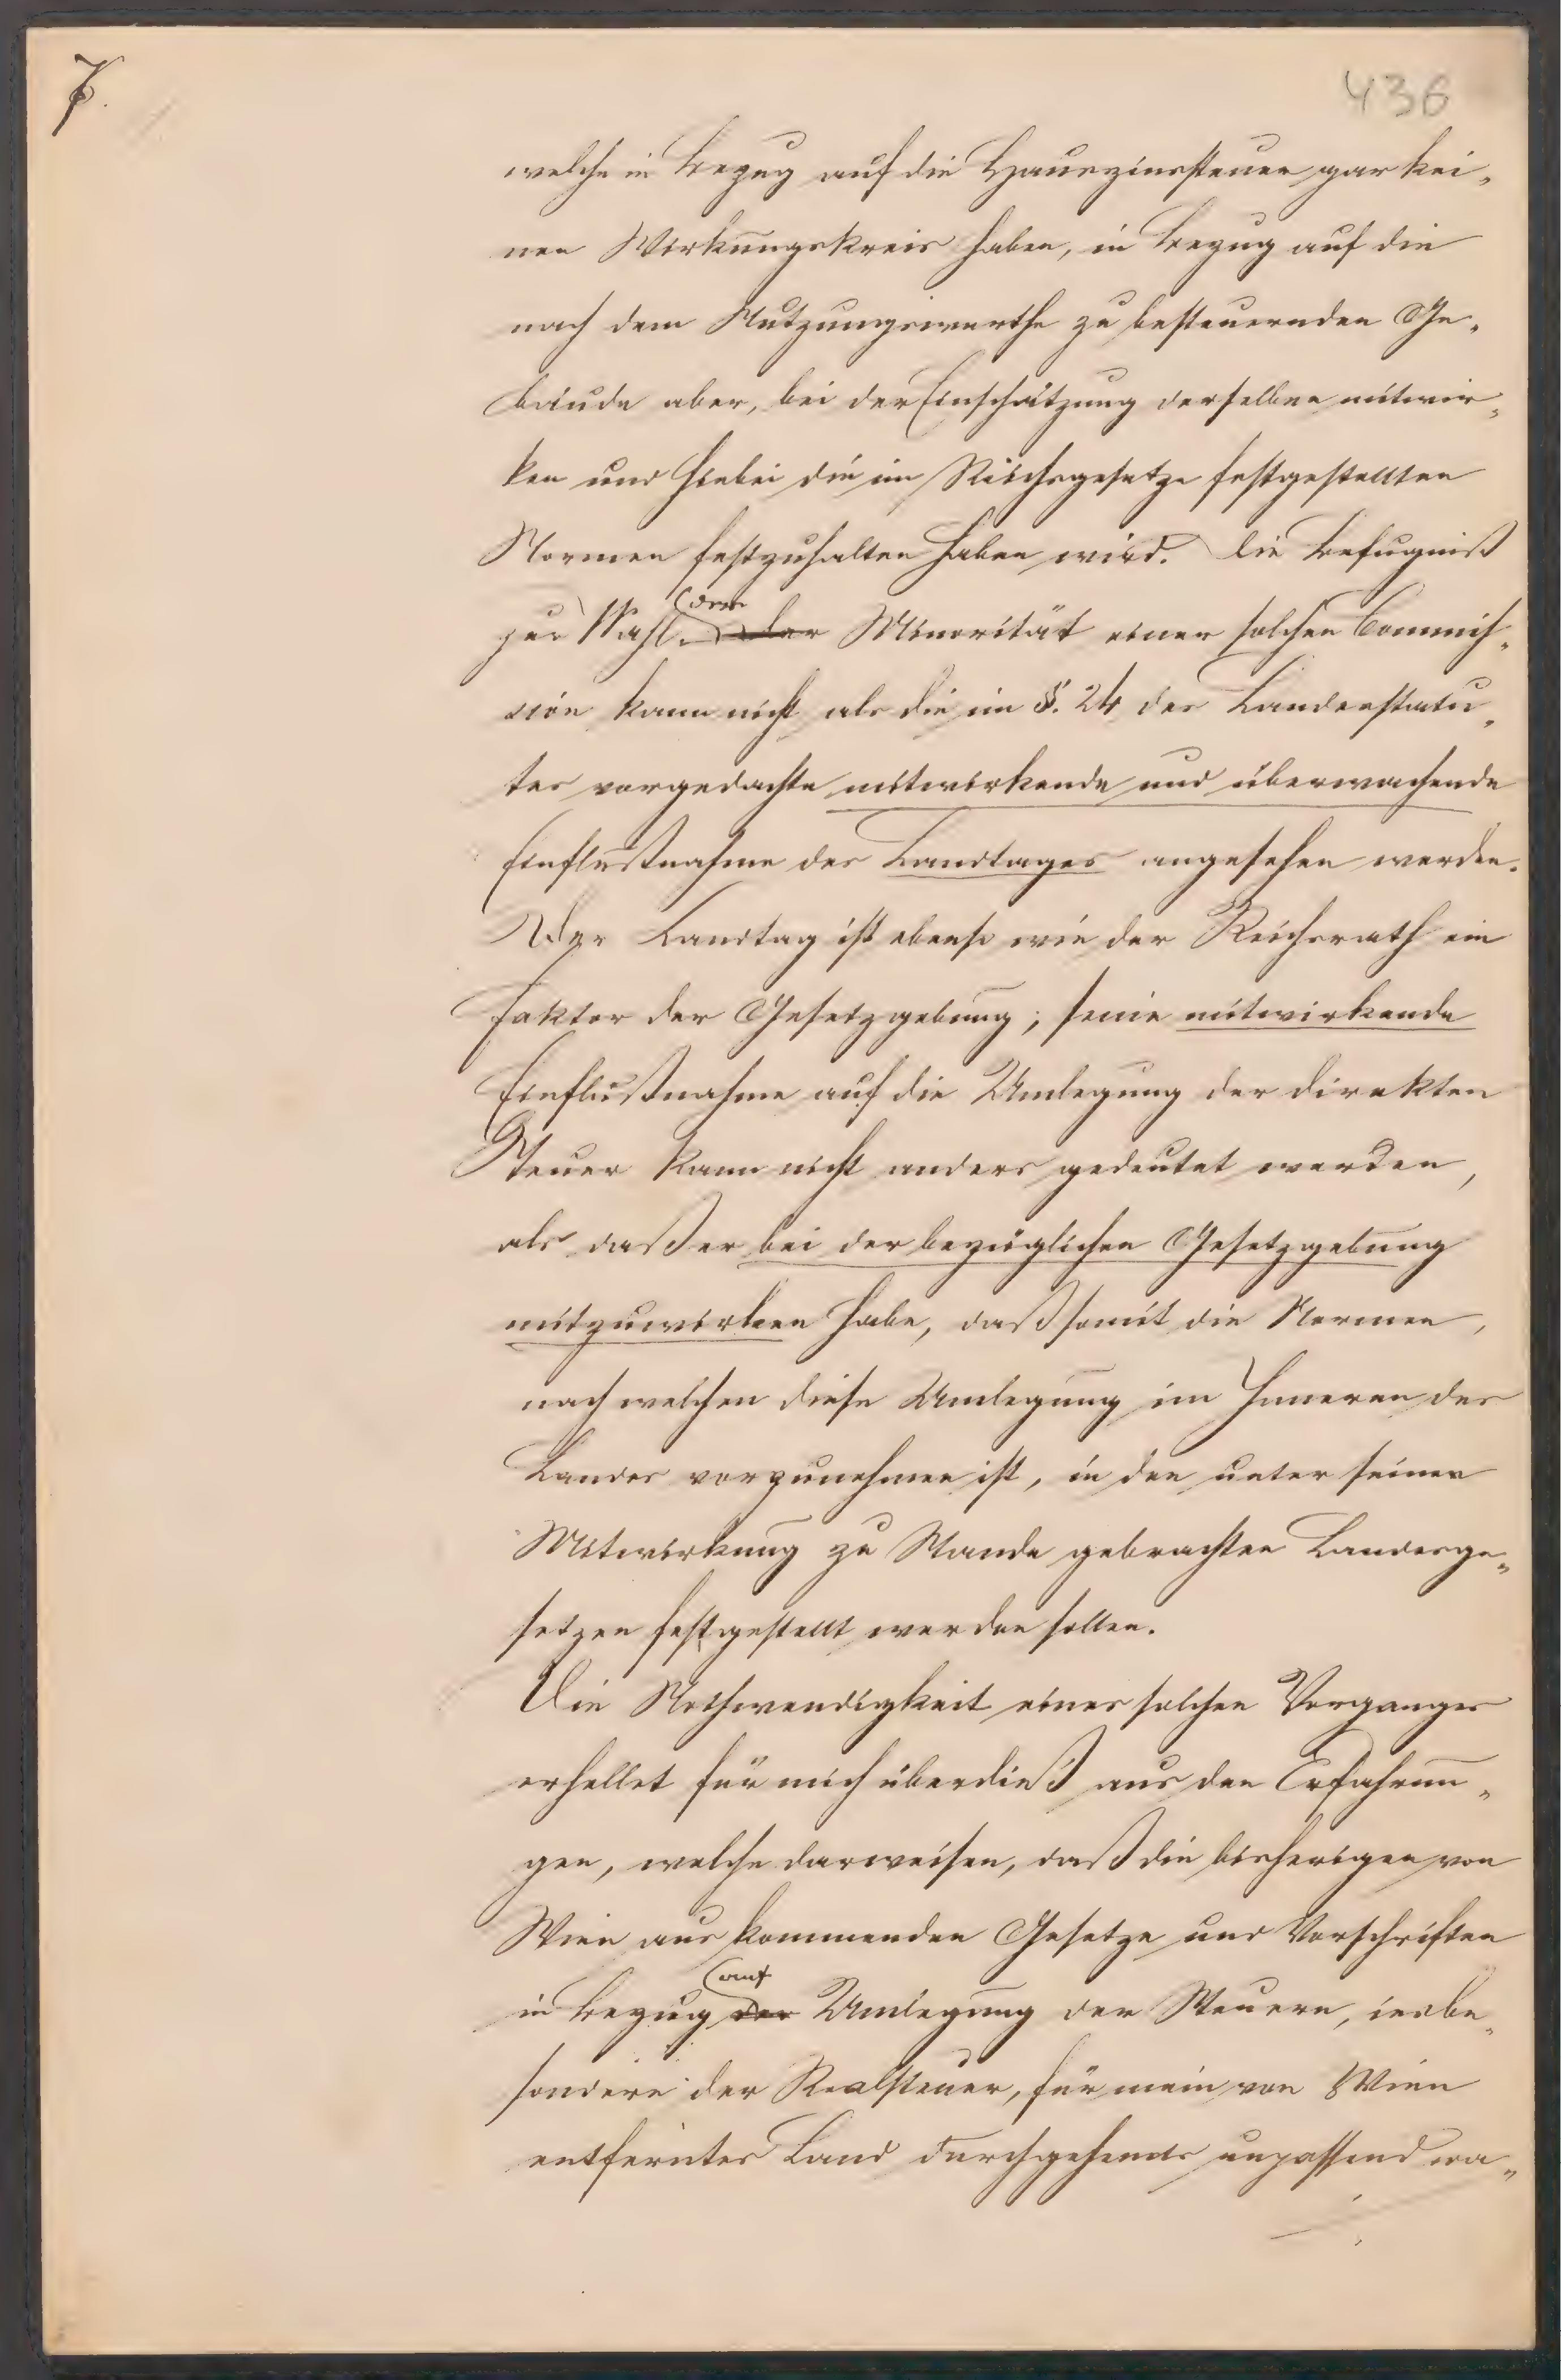 7.
436
welche in Bezug auf die Hauszinssteuer gar kei„
nen Wirkungskreis haben, in Bezug auf die
nach dem Nutzungswerthe zu besteuernden Ge„
bäude aber, bei der Einschätzung derselben mitwir„
ken und hiebei die im Reichsgesetze festgestellten
Normen festzuhalten haben wird. Die Befugniß
zur Wahl der Minorität einer solchen Commis„
sion kann nicht als die im §. 24 des Landesstatu„
tes vorgedachte mitwirkende und überwachende
Einflußnahme des Landtages angesehen werden.
Der Landtag ist ebenso wie der Reichsrath ein
Faktor der Gesetzgebung; seine mitwirkende
Einflußnahme auf die Umlegung der direkten
Steuer kann nicht anders gedeutet werden,
als daß er bei der bezüglichen Gesetzgebung
mitzuwirken habe, daß somit die Normen,
nach welchen diese Umlegung im Inneren des
Landes vorzunehmen ist, in den unter seiner
Mitwirkung zu Stande gebrachten Landesge„
setzen festgestellt werden sollen.
Die Nothwendigkeit eines solchen Vorganges
erhellet für mich überdieß aus den Erfahrun„
gen, welche darweisen, daß die bisherigen von
Wien aus kommenden Gesetze und Vorschriften
auf
in Bezug der Umlegung der Steuern, insbe„
sondere der Realsteuer, für mein von Wien
entferntes Land durchgehends unpassend wa„